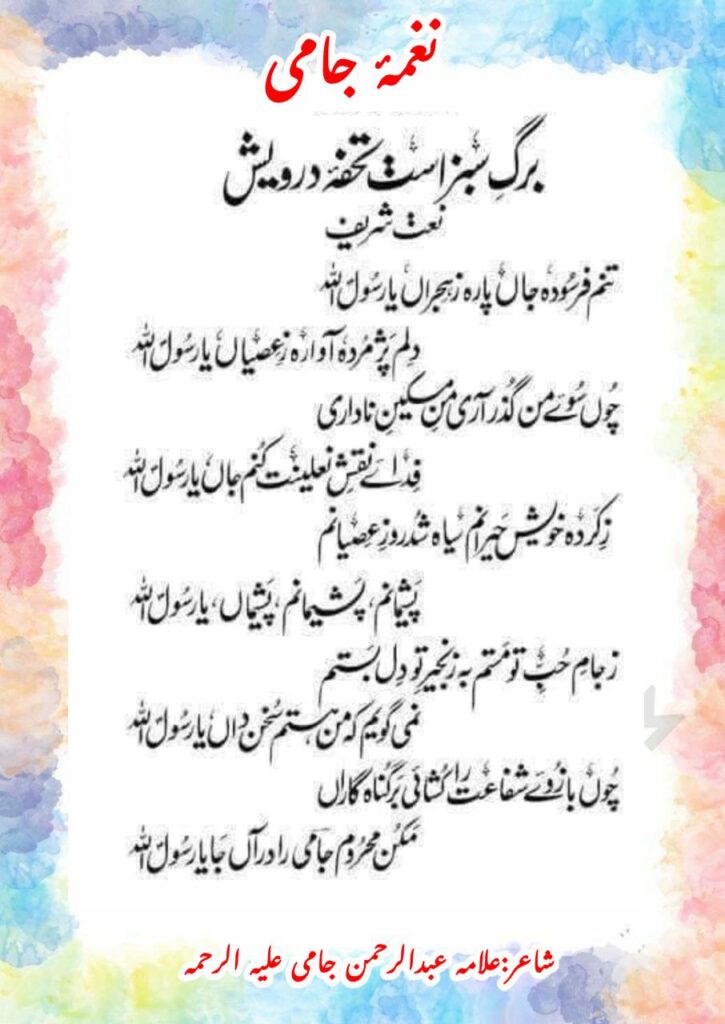 نغمۂ جامی
برگِ سبز است تحفۂ درویش
نعت شریف
تنم فرسُودہ جاں پارہ زِہجراں یا رسُولؐ اللہ
دِلم پَژمُردہ آوارہ زِعصیاں یا رسُولؐ اللہ
چُوں سُوئے من گُذر آری منِ مسکین ناداری
فِدائے نقشِ نعلینت کُنم جاں یا رسُولؐ اللہ
زِکردہ خویش حیرانم سیاہ شُد روزِ عِصیانم
پَشیمانم، پَشیمانم، پَشیماں، یا رسُولؐ اللہ
زجامِ حُبِّ تو مَستم بہ زنجیرِ تو دِل بَستم
نمی گویم کہ من ہستم سُخن داں یا رسُولؐ اللہ
چُوں بازُوئے شفاعت را کُشائی بَر گُناہ گاراں
مَکُن محرُوم جامی را درآں جا یا رسُولؐ اللہ
شاعر:علامہ عبدالرحمن جامی علیہ الرحمہ